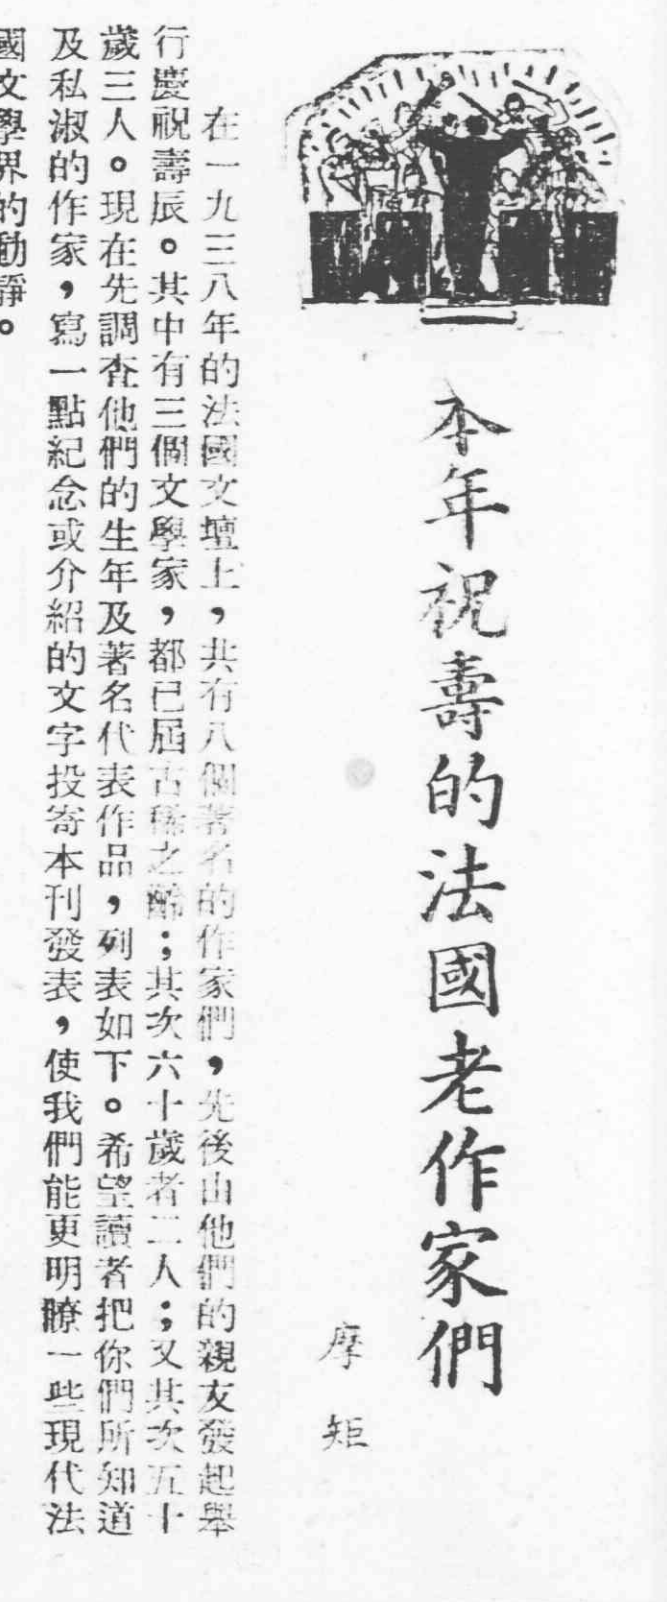 本年祝壽的法國老作家們
摩矩
在一九三八年的法國文壇上，共有八個著名的作家們，先後由他們的親友發起舉
行慶祝壽辰。其中有三個文學家，都已屆古稀之齡；其次六十歲者二人；又其次五十
歲三人。現在先調查他們的生年及著名代表作品，列表如下。希望讀者把你們所知道
及私淑的作家，寫一點紀念或介紹的文字投寄本刊發表，使我們能更明瞭一些現代法
國文學界的動靜。